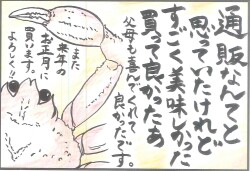 通販なんてと
思っていたけれど
すごく美味しかった
買って良かったぁ
父母も喜んでくれて
良かったです。
また
来年の
お正月に
買います。
よろしく!!